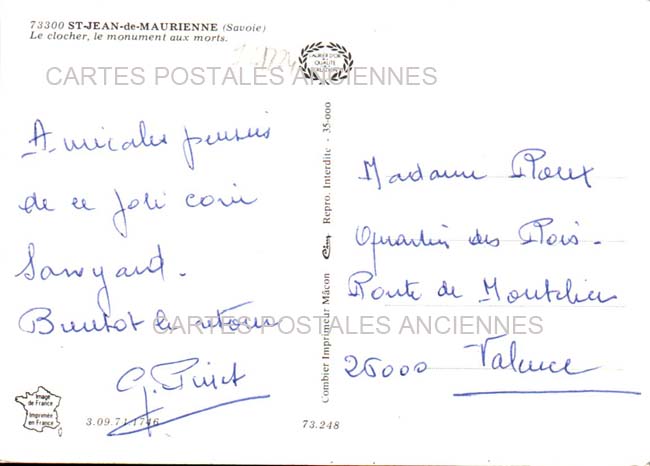 73300 ST-JEAN-de-MAURIENNE (Savoie)
Le clocher, le monument aux morts.
CARTES POSTALES ANCIENNES
Amicales pensées
de ce joli coin
Savoyard.
Bientôt le retour
G. Pinet
Image
de France
Imprimée
en France
3.09.71.1746
73.248
Combier Imprimeur Mâcon Cim Repro. Interdite - 35-000
Madame Roux
Quartier des Rois.
Route de Montélier
26000 Valence
CARTES POSTALES ANCIENNES